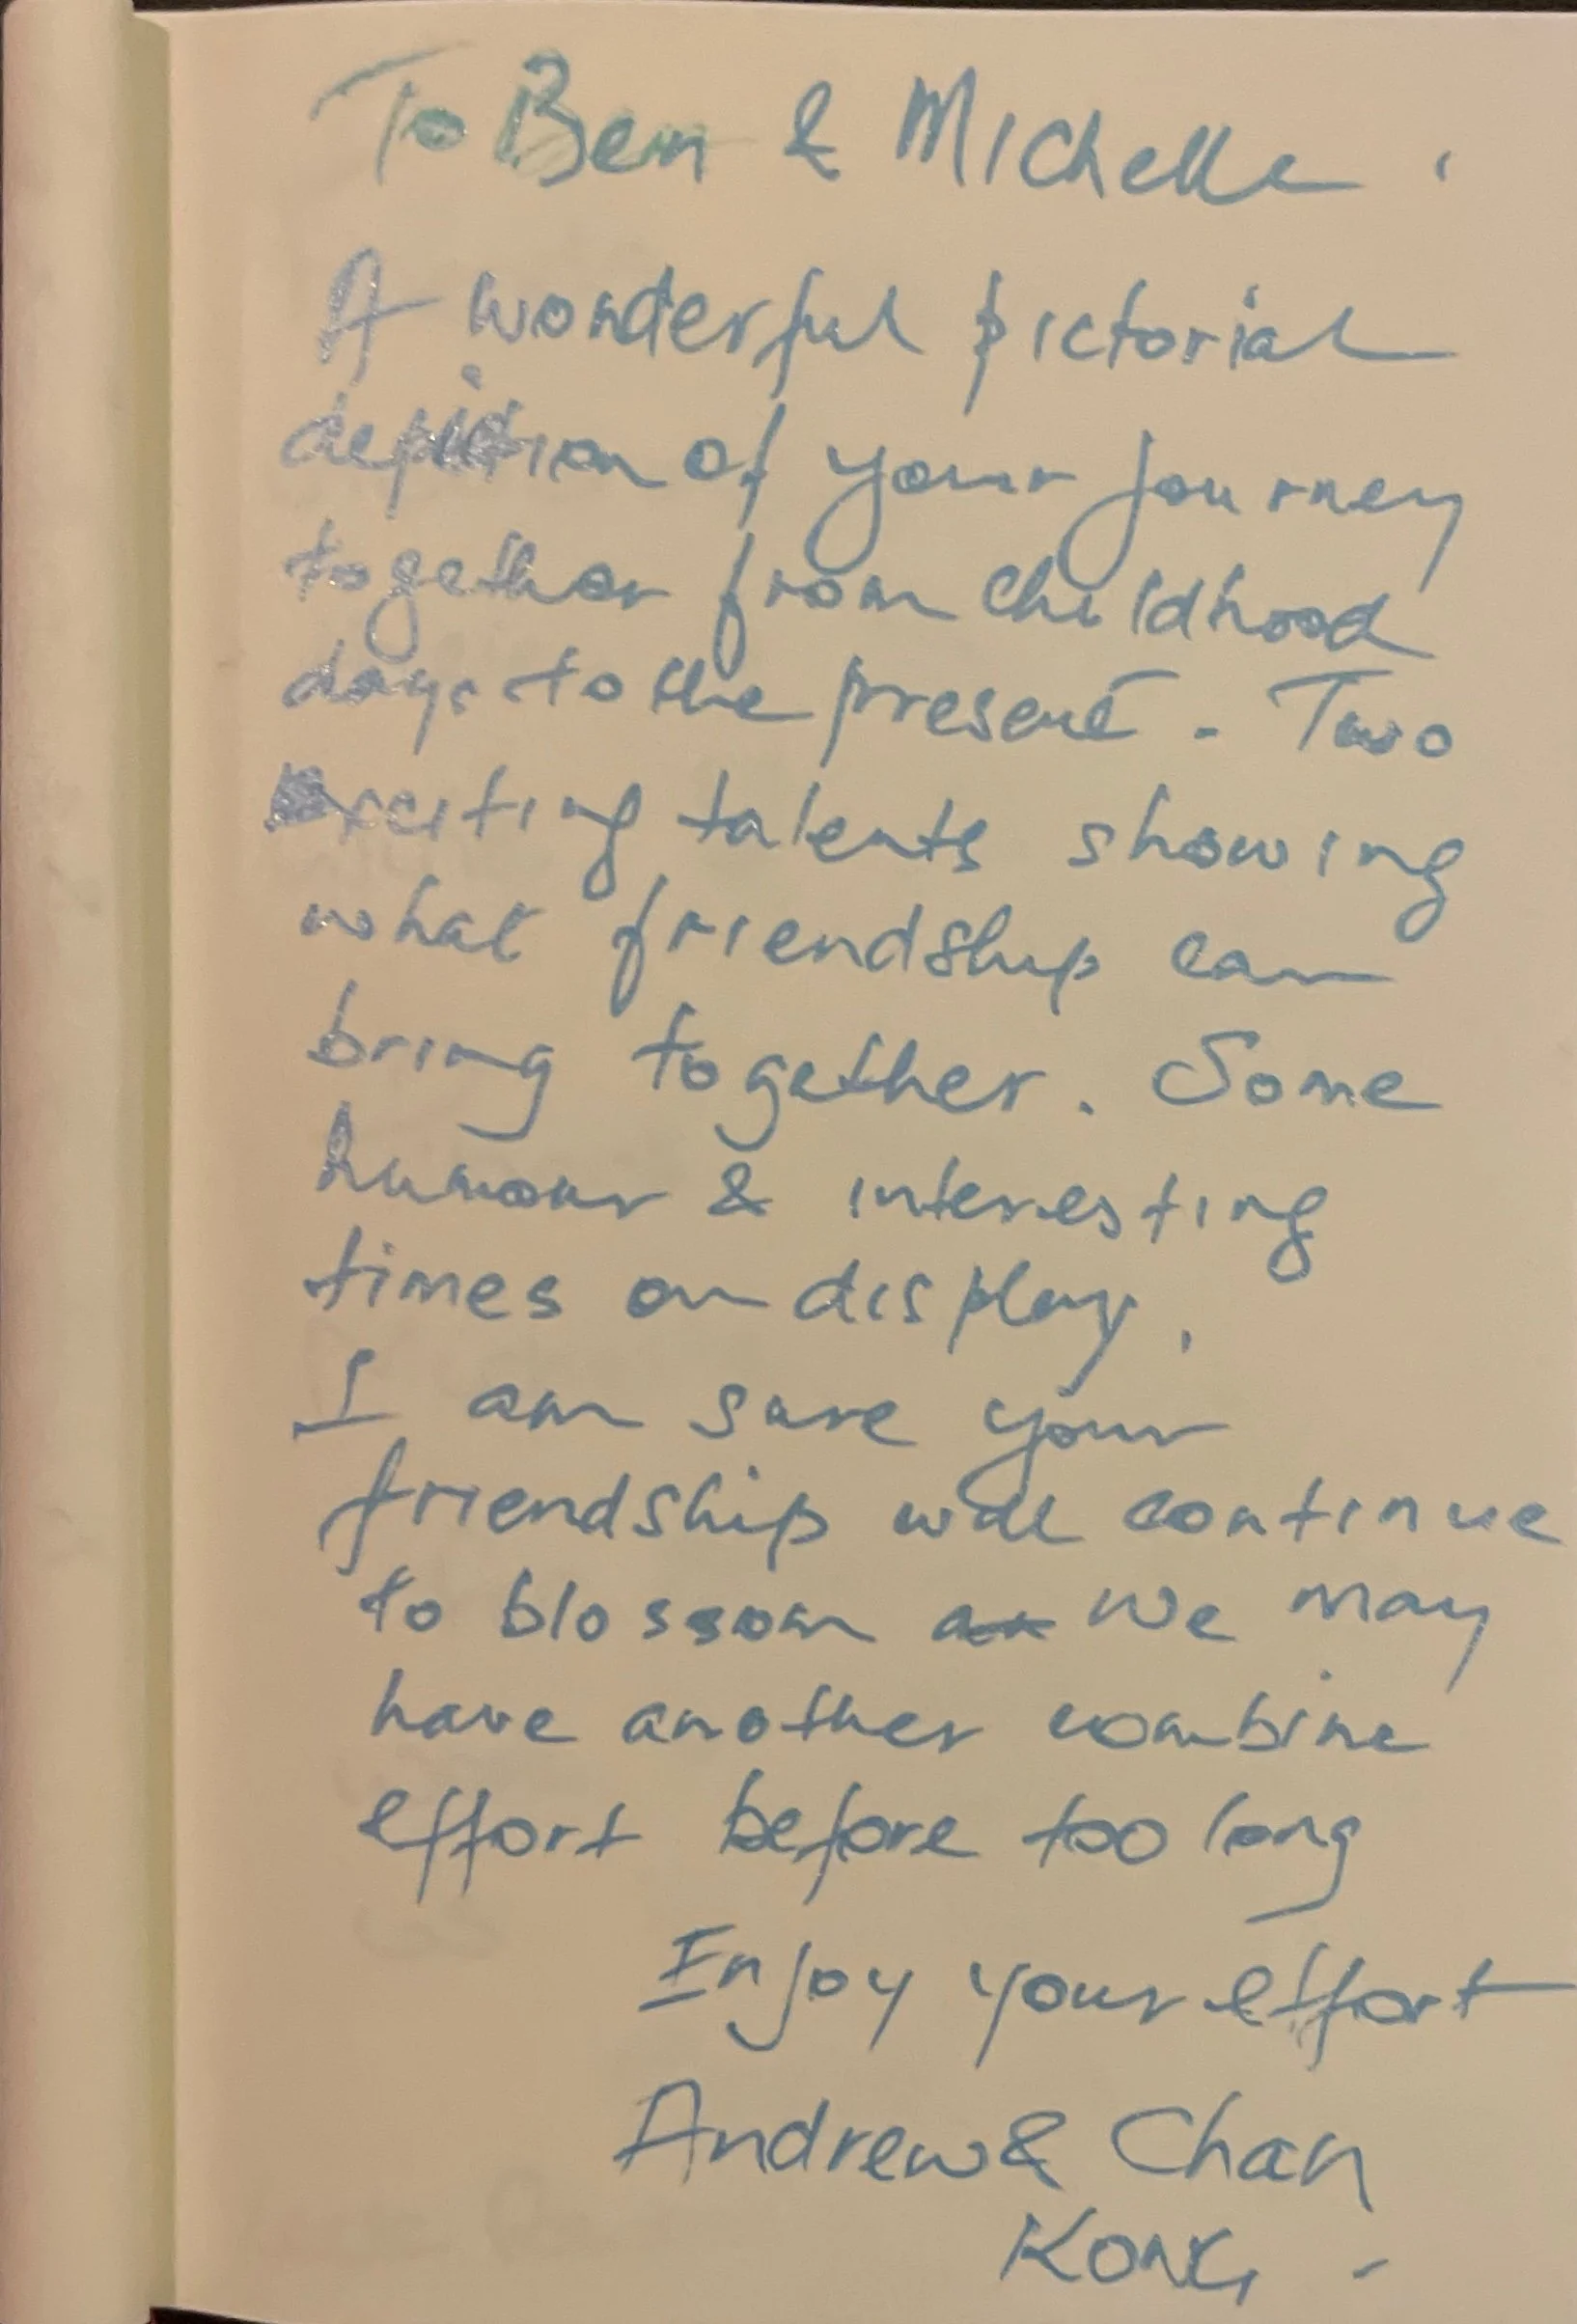 To Ben & Michelle.
A wonderful pictorial
depiction of your journey
together from childhood
days to the present. Two
exciting talents showing
what friendship can
bring together. Some
humour & interesting
times on display.
I am sure your
friendship will continue
to blossom We may
have another combine
effort before too long
Enjoy your effort
Andrew & Chan
Kong.